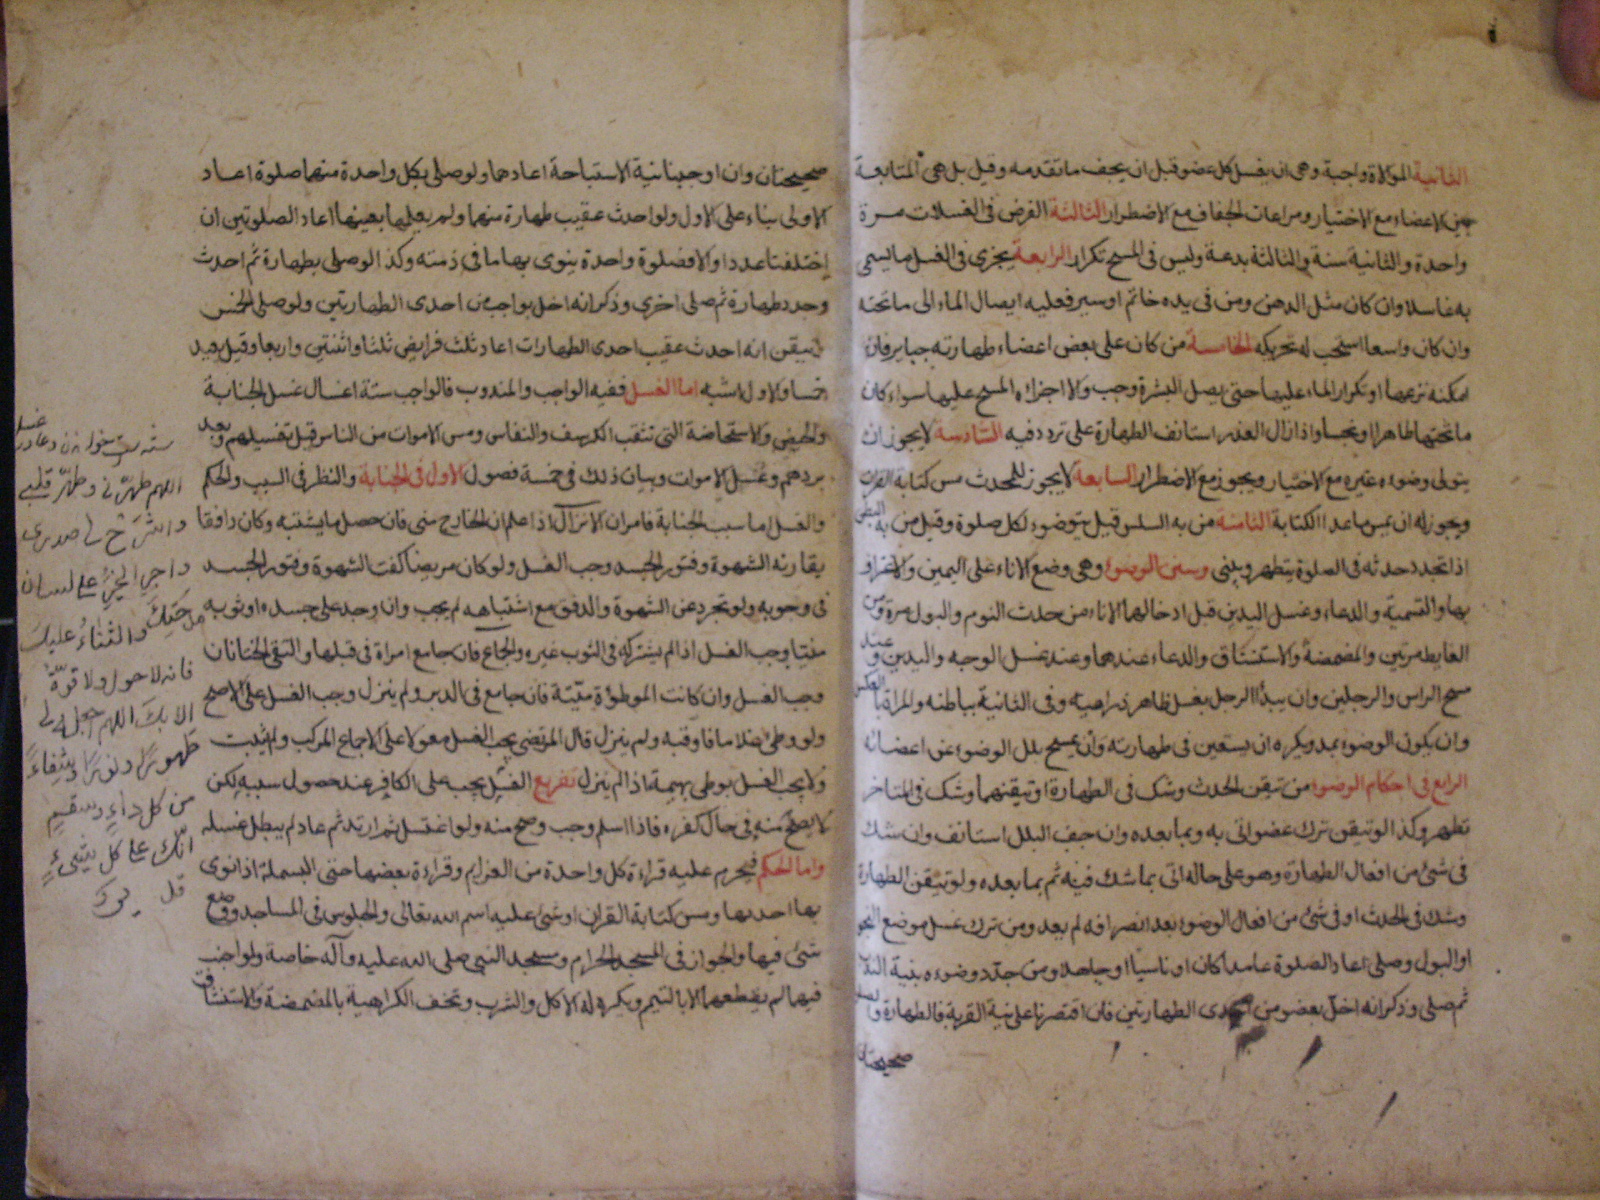 الثانية الموالاة واجبة وهى ان يغسل كل عضو قبل ان يجف ما تقدمه وقيل بل هى المتابعة
بين الاعضاء مع الاختيار ومراعات الجفاف مع الاضطرار الثالثة الفرض فى الغسلات مرة
واحدة والثانية سنة والثالثة بدعة وليس فى المسح تكرار الرابعة يجزى فى الغسل ما يسمى
به غاسلا وان كان مثل الدهن ومن فى يده خاتم او سير فعليه ايصال الماء الى ما تحته
وان كان واسعا استحب له تحريكه الخامسة من كان على بعض اعضاء طهارته جباير فان
امكنه نزعها او تكرار الماء عليها حتى يصل البشرة وجب والا اجزاه المسح عليها سواء كان
ما تحتها طاهرا او نجسا واذا زال العذر استانف الطهارة على تردد فيه السادسة لا يجوز ان
يتولى وضوءه غيره مع الاختيار ويجوز مع الاضطرار السابعة لا يجوز للمحدث مس كتابة القران
ويجوز له ان يمس ما عدا الكتابة الثامنة من به السلس قيل يتوضوء لكل صلوة وقيل من به البطن
اذا تجدد حدثه فى الصلوة يتطهر ويبنى وسنن الوضوء وهى وضع الاناء على اليمين والاغتراف
بها والتسمية والدعاء وغسل اليدين قبل ادخالهما الاناء من حدث النوم والبول مرة ومن
الغايط مرتين والمضمضة والاستنشاق والدعاء عندهما وعند غسل الوجه واليدين وعند
مسح الراس والرجلين وان يبدأ الرجل بغسل ظاهر ذراعيه وفى الثانية بباطنه والمراة بالعكس
وان يكون الوضوء بمد ويكره ان يستعين فى طهارته وان يمسح بلل الوضوء عن اعضائه
الرابع فى احكام الوضوء من تيقن الحدث وشك فى الطهارة او تيقنهما وشك فى المتاخر
تطهر وكذا لو تيقن ترك عضو اتى به وبما بعده وان جف البلل استانف وان شك
فى شئ من افعال الطهارة وهو على حاله اتى بما شك فيه ثم بما بعده ولو تيقن الطهارة
وشك فى الحدث او فى شئ من افعال الوضوء بعد انصرافه لم يعد ومن ترك غسل موضع النجو
او البول وصلى اعاد الصلوة عامدا كان او ناسيا او جاهلا ومن جدد وضوءه بنية الندب
ثم صلى وذكر انه اخل بعضو من احدى الطهارتين فان اقتصرنا على نية القربة فالطهارة والصلوة
صحيحتان
صحيحتان وان اوجبنا نية الاستباحة اعادهما ولو صلى بكل واحدة منهما صلوة اعاد
الاولى بناء على الاول ولو احدث عقيب طهارة منهما ولم يعلمها بعينها اعاد الصلوتين ان
اختلفتا عددا والا فصلوة واحدة ينوى بها ما فى ذمته وكذا لو صلى بطهارة ثم احدث
وجدد طهارة ثم صلى اخرى وذكر انه اخل بواجب من احدى الطهارتين ولو صلى الخمس
وتيقن انه احدث عقيب احدى الطهارات اعاد ثلث فرايض ثلثا واثنتين واربعا وقيل يعيد
خمسا والاول اشبه اما الغسل ففيه الواجب والمندوب فالواجب ستة اغسال غسل الجنابة
والحيض والاستحاضة التى تثقب الكرسف والنفاس ومس الاموات من الناس قبل تغسيلهم وبعد
بردهم وغسل الاموات وبيان ذلك فى خمسة فصول الاول فى الجنابة والنظر فى السبب والحكم
والغسل اما سبب الجنابة فامران الانزال اذا علم ان الخارج منى فان حصل ما يشتبه وكان دافقا
يقارنه الشهوة وفتور الجسد وجب الغسل ولو كان مريضا كفت الشهوة وفتور الجسد
فى وجوبه ولو تجرد عن الشهوة والدفق مع اشتباهه لم يجب وان وجد على جسده او ثوبه
منيا وجب الغسل اذا لم يشركه فى الثوب غيره والجماع فان جامع امراة فى قبلها والتقى الختانان
وجب الغسل وان كانت الموطؤة ميتة فان جامع فى الدبر ولم ينزل وجب الغسل على الاصح
ولو وطئ غلاما فاوقبه ولم ينزل قال المرتضى يجب الغسل معولا على الاجماع المركب ولم يثبت
ولا يجب الغسل بوطى بهيمة اذا لم ينزل تفريع الغسل يجب على الكافر عند حصول سببه لكن
لا يصح منه فى حال كفره فاذا اسلم وجب وصح منه ولو اغتسل ثم ارتد ثم عاد لم يبطل غسله
واما الحكم فيحرم عليه قراءة كل واحدة من العزايم وقراءة بعضها حتى البسملة اذا نوى
بها احديها ومس كتابة القران او شئ عليه اسم الله تعالى والجلوس فى المساجد ووضع
شئ فيها والجواز فى المسجد الحرام ومسجد النبى صلى الله عليه وآله خاصة ولو اجنب
فيهما لم يقطعهما الا بالتيمم ويكره له الاكل والشرب وتخف الكراهية بالمضمضة والاستنشاق
اللهم طهرنى وطهر قلبى
واشرح لى صدرى
واجر الخير على لسانى
مدحتك والثناء عليك
فانه لا حول ولا قوة
الا بك اللهم اجعله لى
طهورا ونورا وشفاءً
من كل داءٍ وسقمٍ
انك على كل شئٍ
قدير